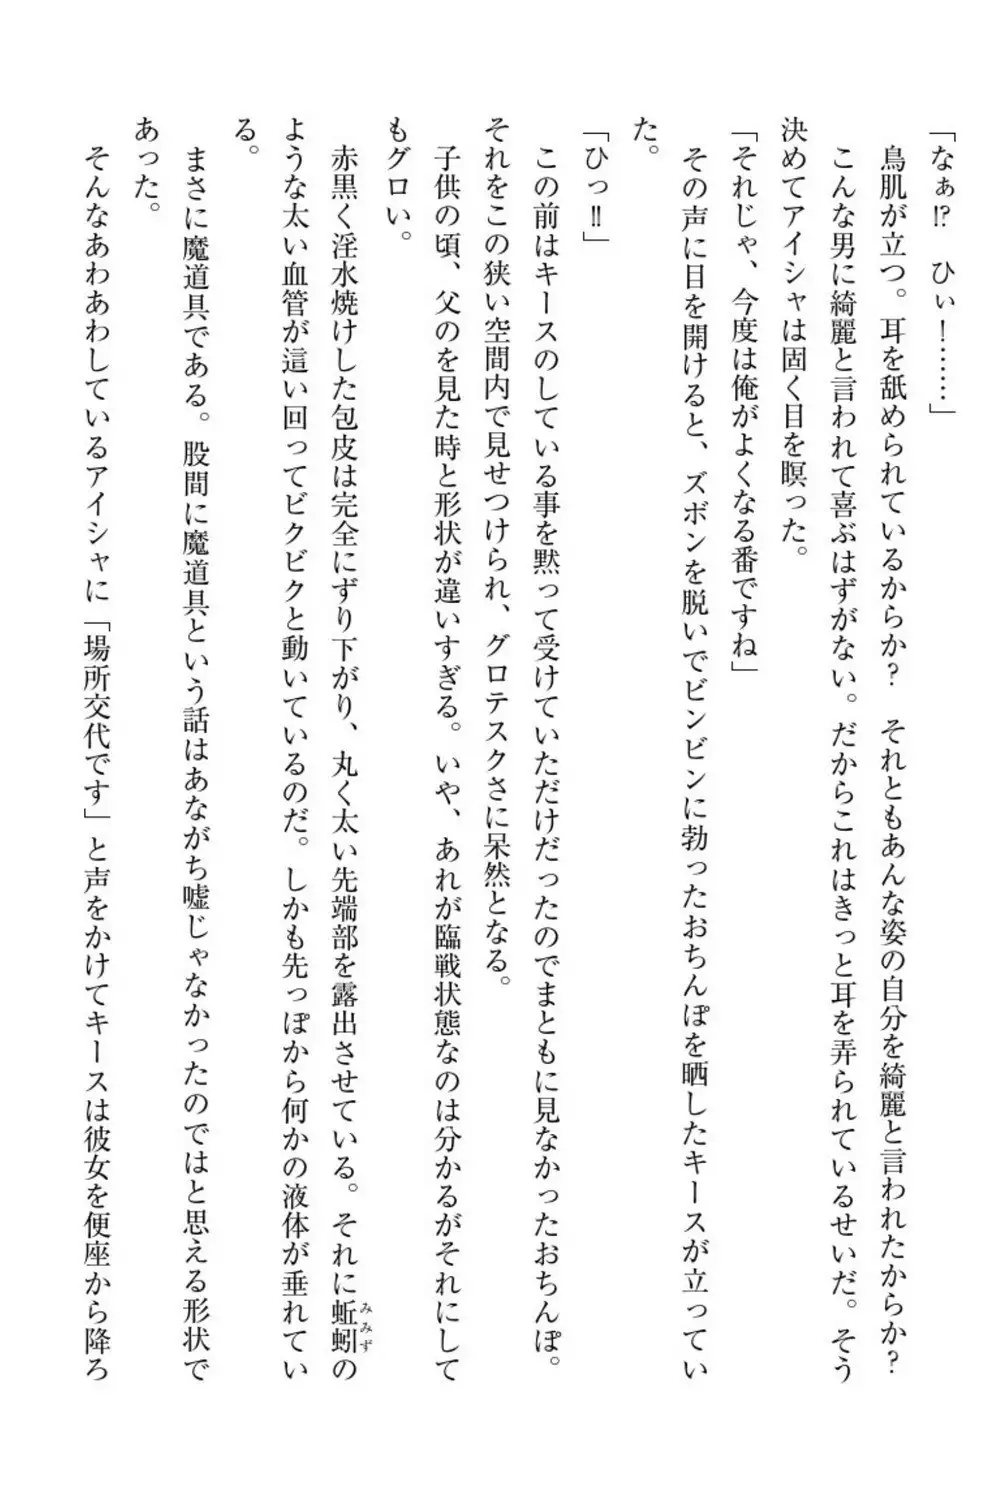 「なぁ⁉　ひぃ！……」
　鳥肌が立つ。耳を舐められているからか？　それともあんな姿の自分を綺麗と言われたからか？
　こんな男に綺麗と言われて喜ぶはずがない。だからこれはきっと耳を弄られているせいだ。そう
決めてアイシャは固く目を瞑った。
「それじゃ、今度は俺がよくなる番ですね」
　その声に目を開けると、ズボンを脱いでビンビンに勃ったおちんぽを晒したキースが立ってい
た。
「ひっ‼」
　この前はキースのしている事を黙って受けていただけだったのでまともに見なかったおちんぽ。
それをこの狭い空間内で見せつけられ、グロテスクさに呆然となる。
　子供の頃、父のを見た時と形状が違いすぎる。いや、あれが臨戦状態なのは分かるがそれにして
もグロい。
　赤黒く淫水焼けした包皮は完全にずり下がり、丸く太い先端部を露出させている。それに蚯蚓みみずの
ような太い血管が這い回ってビクビクと動いているのだ。しかも先っぽから何かの液体が垂れてい
る。
　まさに魔道具である。股間に魔道具という話はあながち嘘じゃなかったのではと思える形状で
あった。
　そんなあわあわしているアイシャに「場所交代です」と声をかけてキースは彼女を便座から降ろ